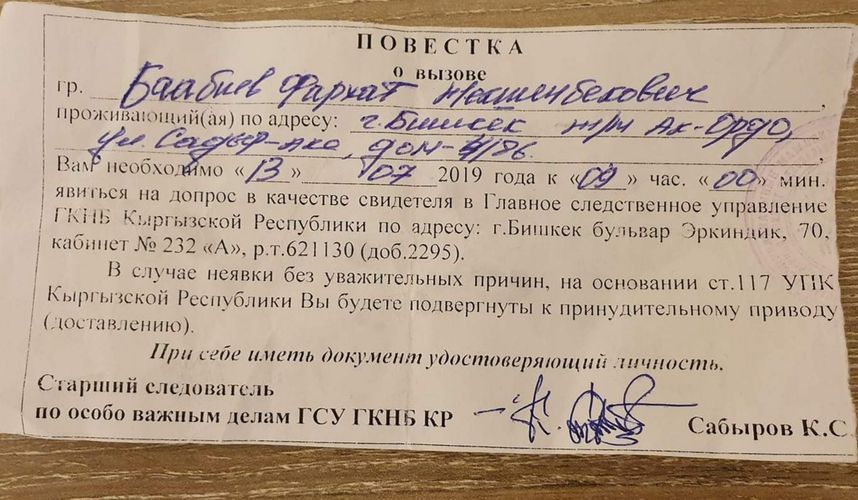 ПОВЕСТКА
о вызове
гр. Баабиев Фархат Жекшенбекович,
проживающий(ая) по адресу: г.Бишкек ж/м Ак-Ордо,
ул. Садыр-аке, дом-4/86.
Вам необходимо «13» 07 2019 года к «09» час. «00» мин.
явиться на допрос в качестве свидетеля в Главное следственное управление
ГКНБ Кыргызской Республики по адресу: г.Бишкек бульвар Эркиндик, 70,
кабинет № 232 «А», р.т.621130 (доб.2295).
В случае неявки без уважительных причин, на основании ст.117 УПК
Кыргызской Республики Вы будете подвергнуты к принудительному приводу
(доставлению).
При себе иметь документ удостоверяющий личность.
Старший следователь
по особо важным делам ГСУ ГКНБ КР Сабыров К.С